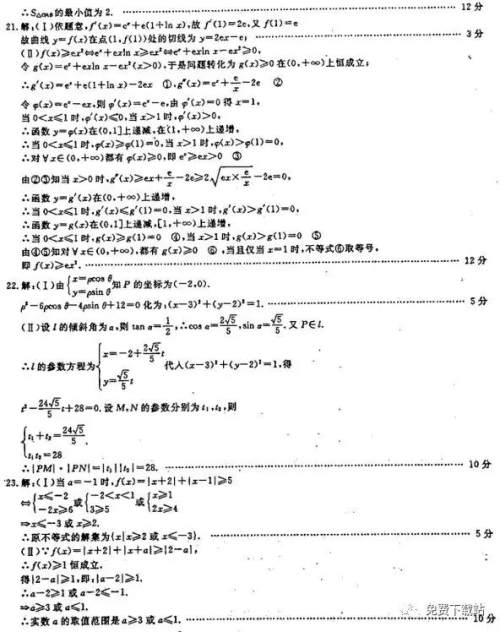 ∴S△OAB的最小值为2. …………… 12分
21.解:(Ⅰ)依题意,f′(x)=eˣ+e(1+ln x),故f′(1)=2e,又f(1)=e
故曲线y=f(x)在点(1,f(1))处的切线为y=2ex-e; …………… 3分
(Ⅱ)f(x)≥ex²⇔eˣ+exln x≥ex²⇔eˣ+exln x-ex²≥0,
令g(x)=eˣ+exln x-ex²(x>0),于是问题转化为g(x)≥0在(0,+∞)上恒成立;
∴g′(x)=eˣ+e(1+ln x)-2ex ①,g″(x)=eˣ+e/x-2e ②
令φ(x)=eˣ-ex,则φ′(x)=eˣ-e,由φ′(x)=0得x=1,
当0<x≤1时,φ′(x)≤0,当x>1时,φ′(x)>0,
∴函数y=φ(x)在(0,1]上递减,在(1,+∞)上递增,
∴当0<x≤1时,φ(x)≥φ(1)=0,当x>1时,φ(x)>φ(1)=0,
∴对∀x∈(0,+∞)都有φ(x)≥0,即eˣ≥ex>0 ③
由②③知当x>0时,g″(x)≥ex+e/x-2e≥2√(ex×e/x)-2e=0,
∴函数y=g′(x)在(0,+∞)上递增,
∴当0<x≤1时,g′(x)≤g′(1)=0,当x>1时,g′(x)>g′(1)=0,
∴函数y=g(x)在(0,1]上递减,[1,+∞)上递增,
∴当0<x≤1时,g(x)≥g(1)=0 ④,当x>1时,g(x)>g(1)=0 ⑤
由④⑤知对∀x∈(0,+∞),都有g(x)≥0 ⑥,当且仅当x=1时,不等式⑥取等号,
即f(x)≥ex². …………… 12分
22.解:(Ⅰ)由{x=ρcos θ y=ρsin θ 知P的坐标为(-2,0).
ρ²-6ρcos θ-4ρsin θ+12=0化为:(x-3)²+(y-2)²=1. …………… 5分
(Ⅱ)设l的倾斜角为α,则tan α=1/2,∴cos α=2√5/5,sin α=√5/5.又P∈l.
∴l的参数方程为{x=-2+2√5/5 t y=√5/5 t 代入(x-3)²+(y-2)²=1,得
t²-24√5/5 t+28=0.设M,N的参数分别为t₁,t₂,则
{t₁+t₂=24√5/5, t₁t₂=28
∴|PM|·|PN|=|t₁||t₂|=28. …………… 10分
23.解:(Ⅰ)当a=-1时,f(x)=|x+2|+|x-1|≥5
⇔{x≤-2 -2x≥6 或{-2<x<1 3≥5 或{x≥1 2x≥4
⇒x≤-3或x≥2.
∴原不等式的解集为{x|x≥2或x≤-3}. …………… 5分
(Ⅱ)∵f(x)=|x+2|+|x+a|≥|2-a|,
∴f(x)≥1恒成立.
得|2-a|≥1,即:|a-2|≥1.
∴a-2≥1或a-2≤-1.
⇒a≥3或a≤1.
∴实数a的取值范围是a≥3或a≤1. …………… 10分
免费下载站